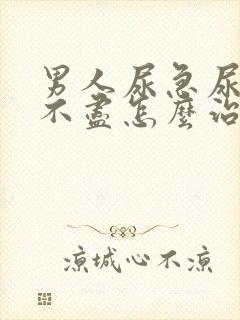 男人尿急尿
不盡怎麼治
涼城心不涼